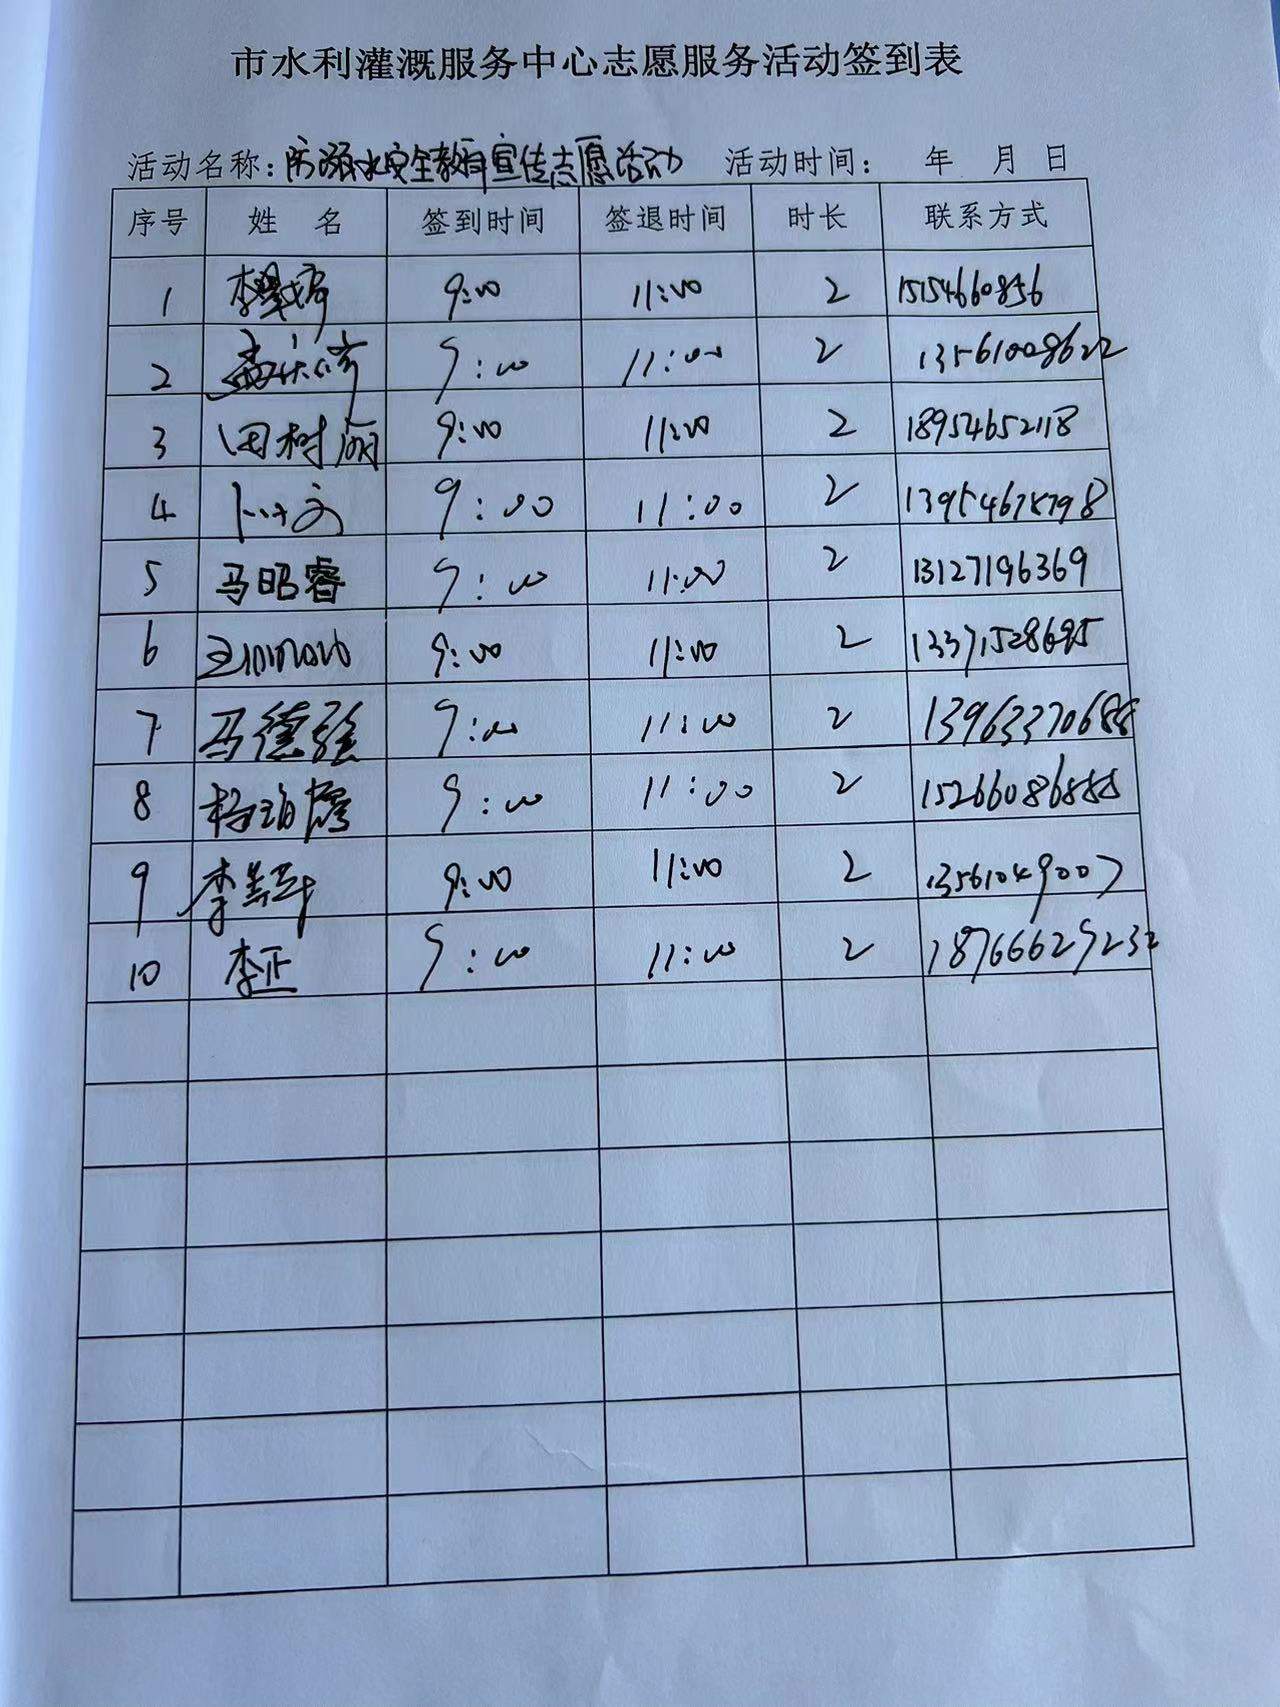 市水利灌溉服务中心志愿服务活动签到表
活动名称：防溺水安全教育宣传志愿活动 活动时间： 年 月 日
序号 姓 名 签到时间 签退时间 时长 联系方式
1 9:00 11:00 2 15154660856
2 9:00 11:00 2 13561008622
3 田树丽 9:00 11:00 2 18954652118
4 9:00 11:00 2 13954678798
5 马昭睿 9:00 11:00 2 13127196369
6 9:00 11:00 2 13371528695
7 马德强 9:00 11:00 2 13963370688
8 9:00 11:00 2 15266086888
9 李 9:00 11:00 2 13561049007
10 李正 9:00 11:00 2 18766629232